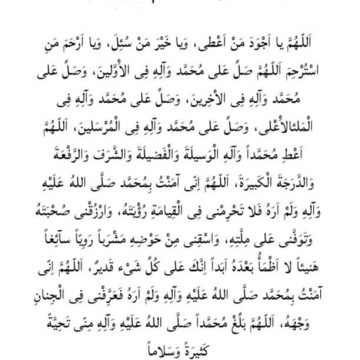 اَللّٰهُمَّ يا اَجْوَدَ مَنْ اَعْطى، وَيا خَيْرَ مَنْ سُئِلَ، وَيا اَرْحَمَ مَنِ
اسْتُرْحِمَ اَللّٰهُمَّ صَلِّ عَلى مُحَمَّد وَآلِهِ فِى الْأَوَّلينَ، وَصَلِّ عَلى
مُحَمَّد وَآلِهِ فِى الْآخِرينَ، وَصَلِّ عَلى مُحَمَّد وَآلِهِ فِى
الْمَلَائِالْأَعْلى، وَصَلِّ عَلى مُحَمَّد وَآلِهِ فِى الْمُرْسَلينَ، اَللّٰهُمَّ
اَعْطِ مُحَمَّداً وَآلَهِ الْوَسيلَةَ وَالْفَضيلَةَ وَالشَّرَفَ وَالرِّفْعَةَ
وَالدَّرَجَةَ الْكَبيرَةَ، اَللّٰهُمَّ اِنّى آمَنْتُ بِمُحَمَّد صَلَّى اللهُ عَلَيْهِ
وَآلِهِ وَلَمْ اَرَهُ فَلا تَحْرِمْنى فِى الْقِيامَةِ رُؤْيَتَهُ، وَارْزُقْنى صُحْبَتَهُ
وَتَوَفَّنى عَلى مِلَّتِهِ، وَاسْقِنى مِنْ حَوْضِهِ مَشْرَباً رَوِيّاً سآئِغاً
هَنيئاً لا اَظْمَأُ بَعْدَهُ اَبَداً اِنَّكَ عَلى كُلِّ شَىْء قَديرٌ، اَللّٰهُمَّ اِنّى
آمَنْتُ بِمُحَمَّد صَلَّى اللهُ عَلَيْهِ وَآلِهِ وَلَمْ اَرَهُ فَعَرِّفْنى فِى الْجِنانِ
وَجْهَهُ، اَللّٰهُمَّ بَلِّغْ مُحَمَّداً صَلَّى اللهُ عَلَيْهِ وَآلِهِ مِنّى تَحِيَّةً
كَثيرَةً وَسَلاماً